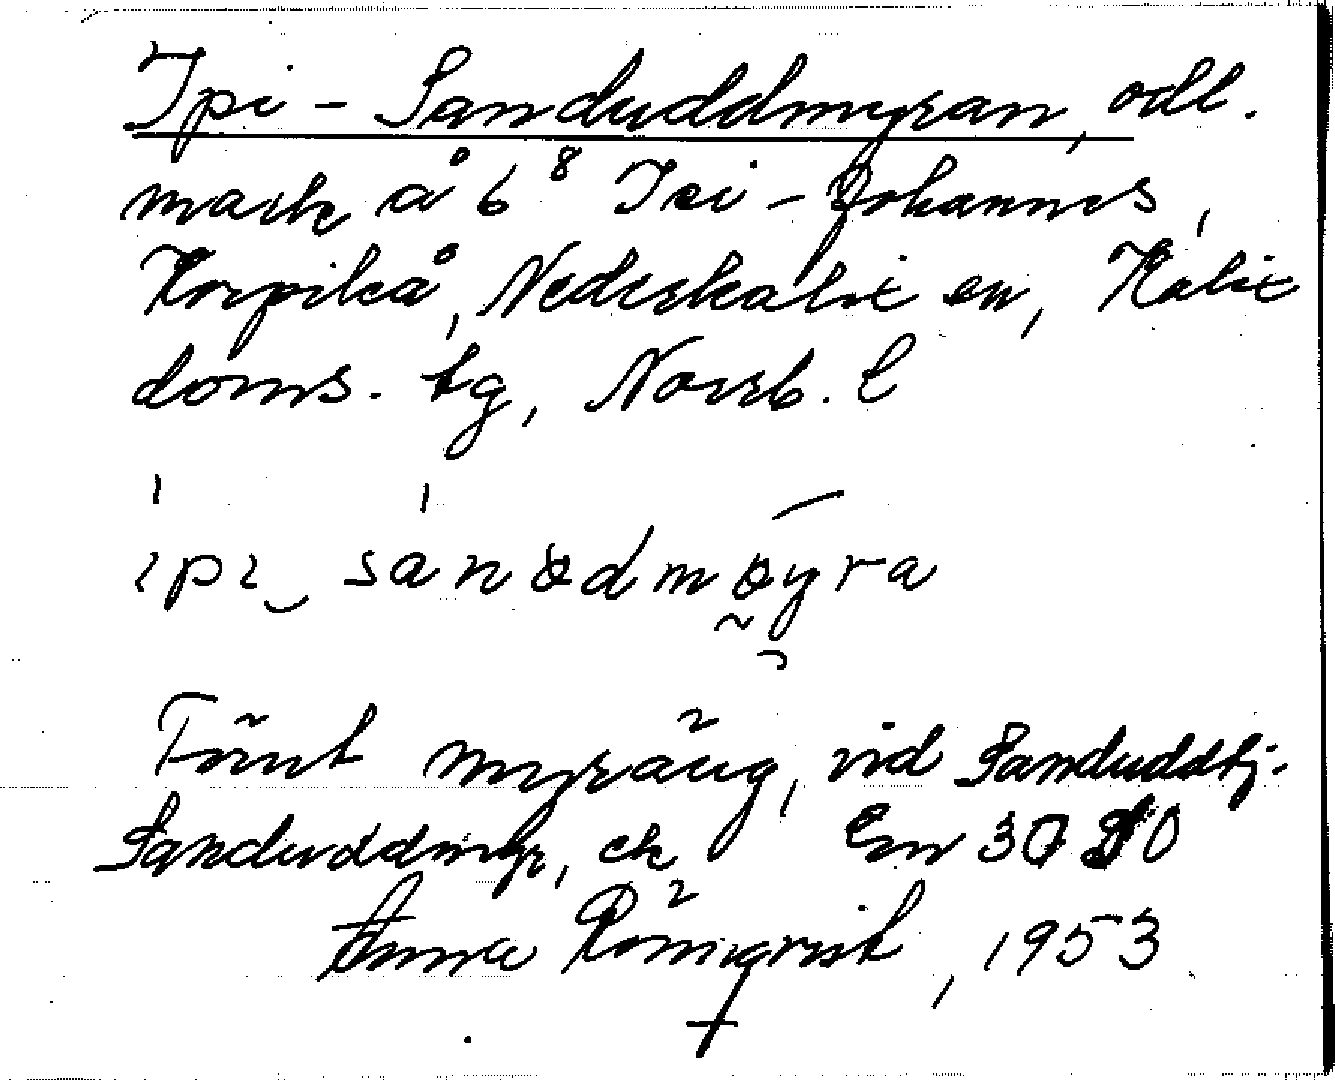 Ipi-Sanduddmyran, odl.
mark å 6⁸ Ipi-Johannes,
Korpikå, Nederkalix sn, Kalix
doms. tg, Norrb. l
ipi sanɵdmɵyra
Förut myräng, vid Sanduddtj.
Sanduddmyr, ek En 3710
Anna Römqvist, 1953